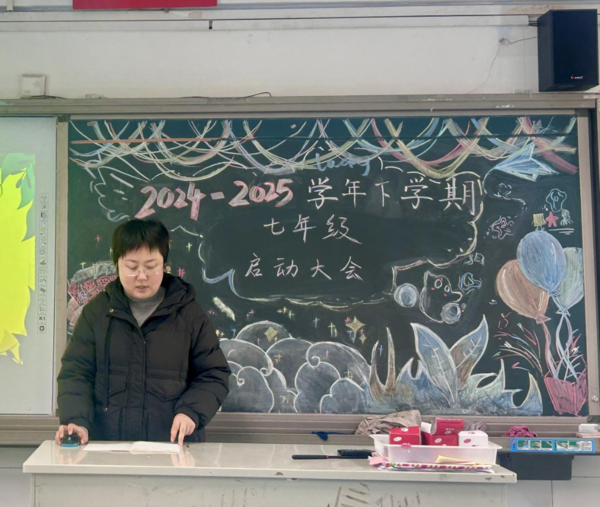 2024-2025 学年下学期
七年级
启动大会